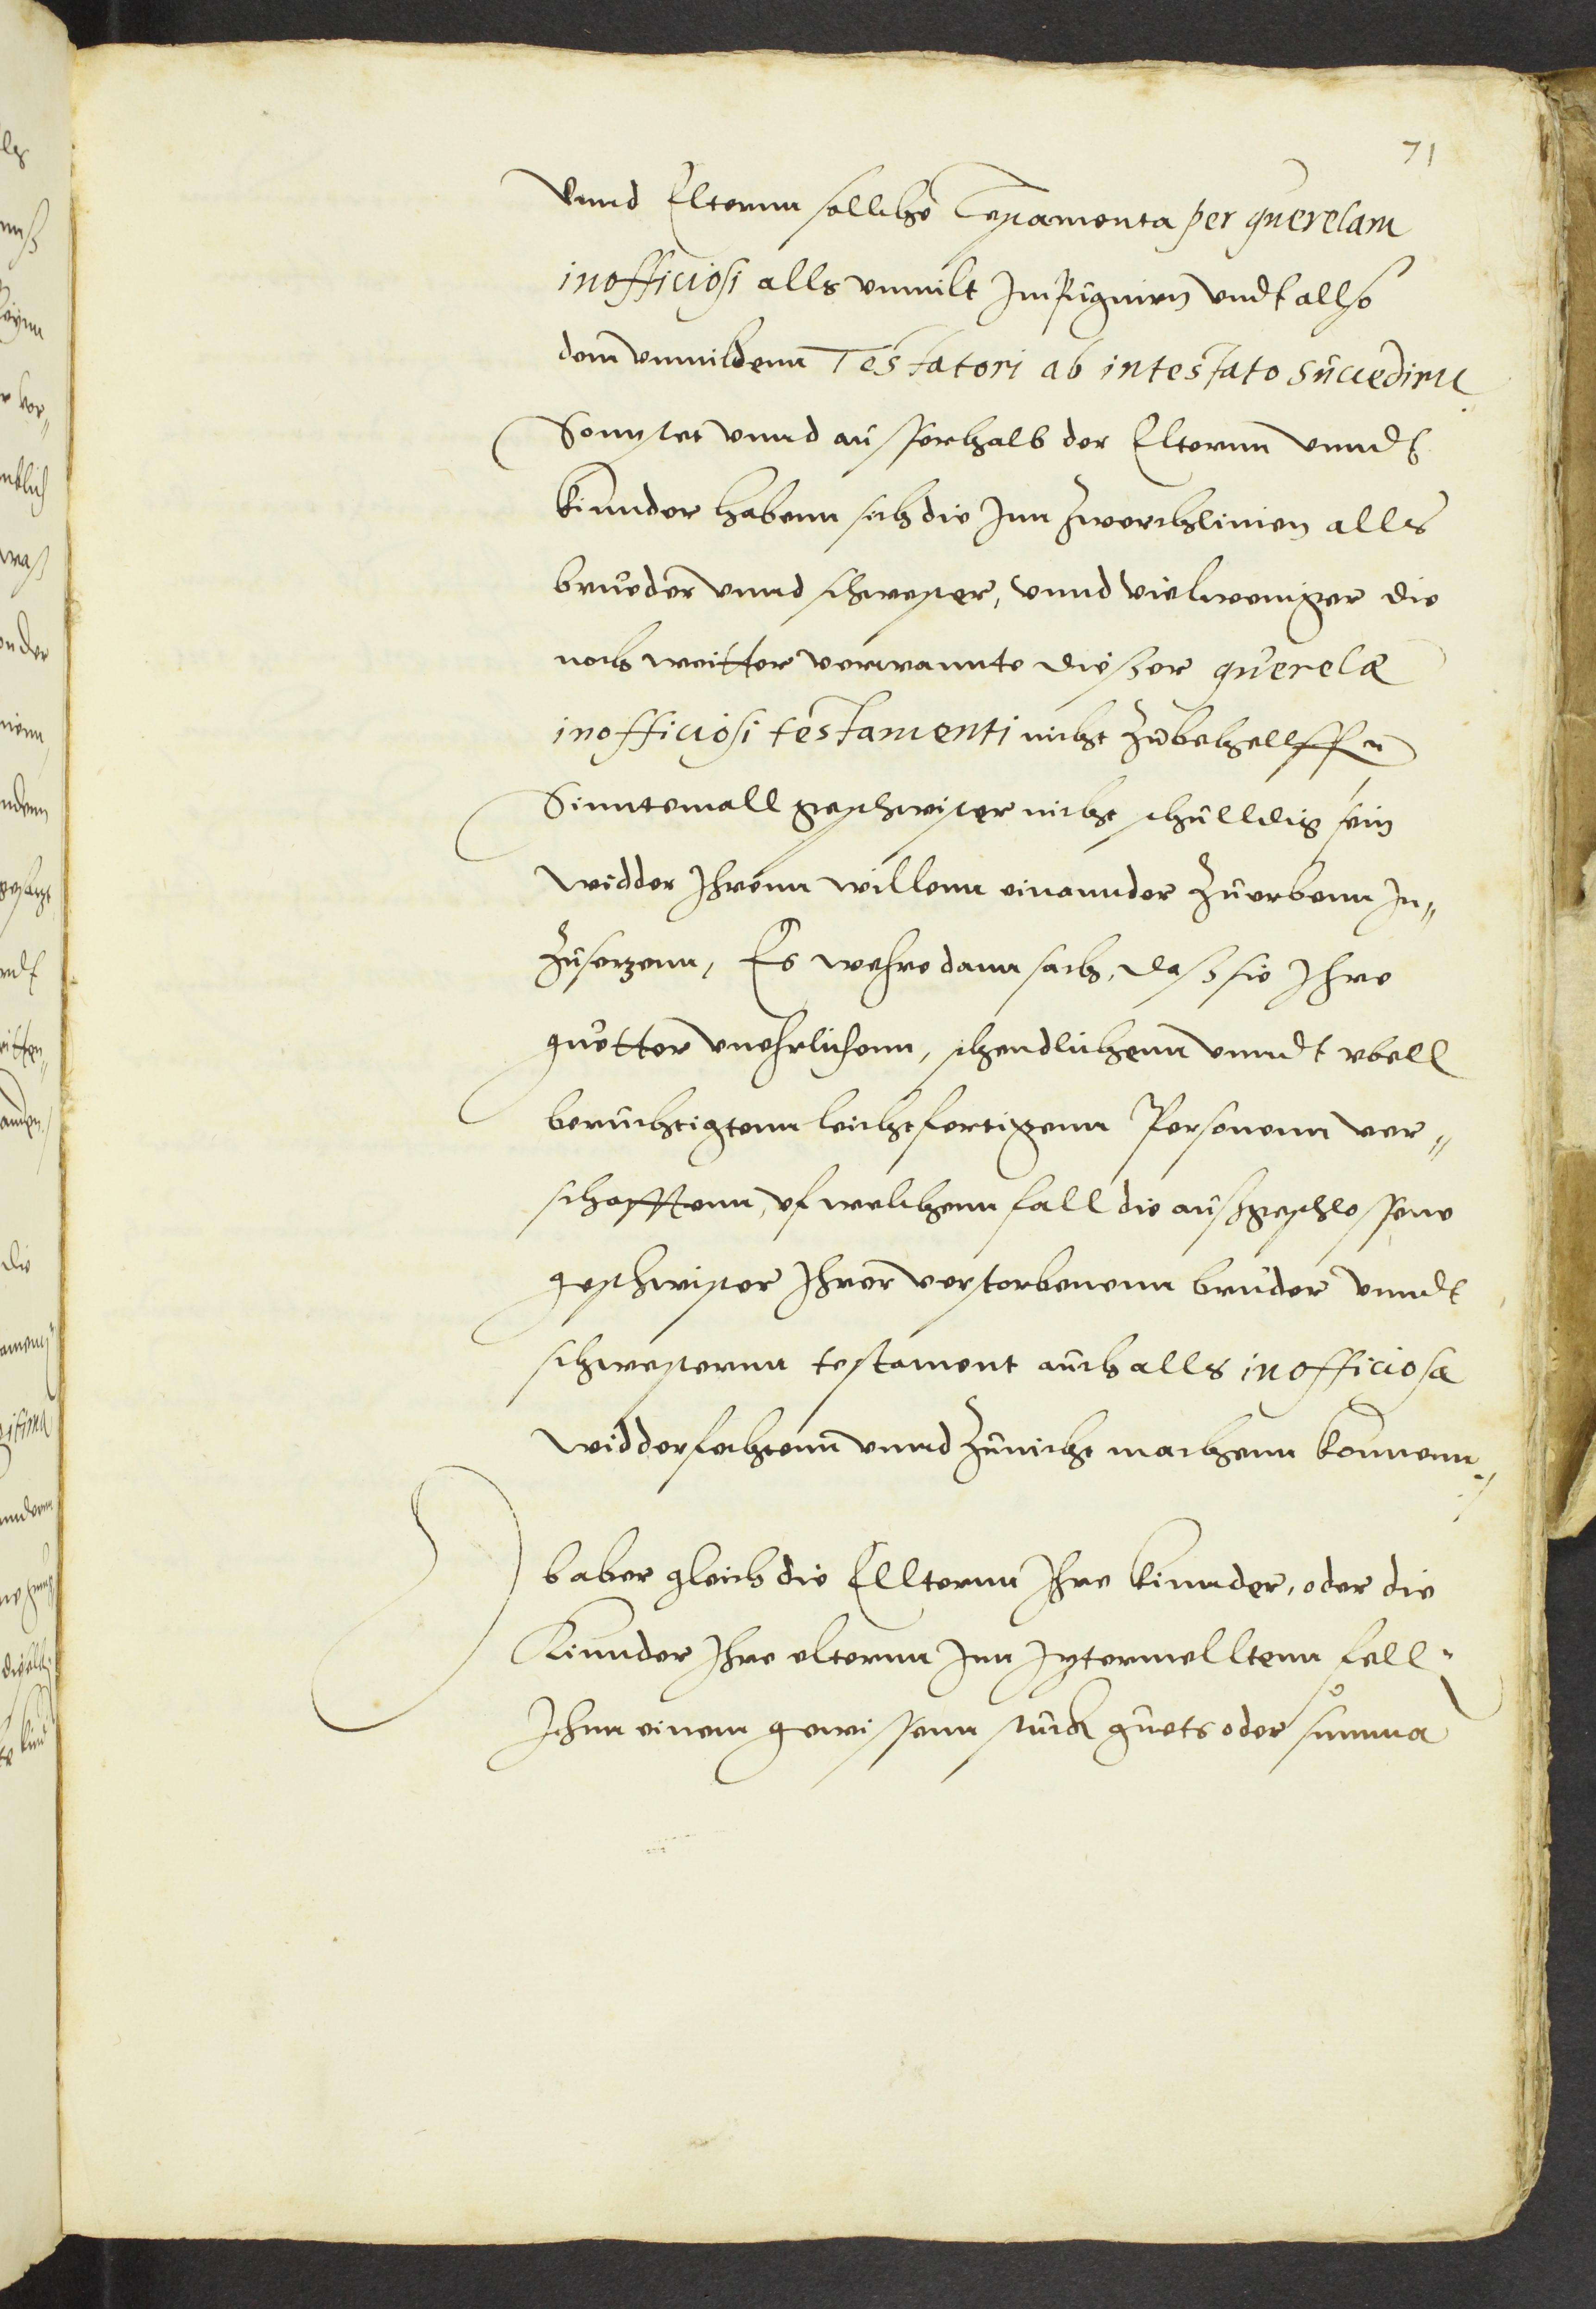 71
Vnnd Elternn solliche Testamenta per querelam
inofficiosi alls vnmilt Impugnirn vndt allso
dem vnmildenn Testatori ab intestato succedirn
Sonstet vnnd ausserhalb der Elternn vnndt
kinnder habenn sich die Inn Zwerchlinien alls
brueder vnnd schwester, vnnd vielweniger die
noch weitter verwannte dießer querelæ
inofficiosi testamenti nicht Zubehellffen
Sinntemall geschwister nicht schulldig sein
widder Ihrenn willenn einannder Zuerbenn In„
Zusetzenn, Es wehre dann sach, daß sie Ihre
guetter vnehrlichenn, schendlichenn vnndt vbell
beruchtigtenn leichtfertigenn Personenn ver„
schafftenn, vf welchenn fall die außgeschlossene
geschwister Ihrer verstorbenenn bruder vnndt
schwesternn testament auch alls inofficiosa
widderfechtenn vnnd Zunicht machenn konnenn
Ob aber gleich die Ellternn Ihre kinnder, oder die
Kinnder Ihre elternn Inn Itzermelltenn fell„
Ichnn einem gewissenn stuck guets oder summa
lich
vor„
nttlich
waß
onder
ndenn
die
kind